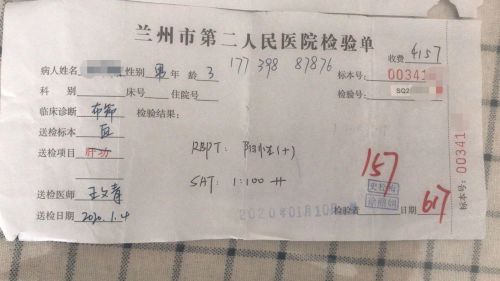 兰州市第二人民医院检验单
收费 4157
病人姓名 性别 男 年龄 3 177 398 87876 标本号: 00341
科别 床号 住院号 检验号: SQ2
临床诊断 布病 检验结果:
送检标本 血
送检项目 肝功 RBPT: 阳性(+)
157
SAT: 1:100 ++
送检医师 王文青
送检日期 2020.1.4 2020年01月10日 检验者 日期 617
标本号: 00341